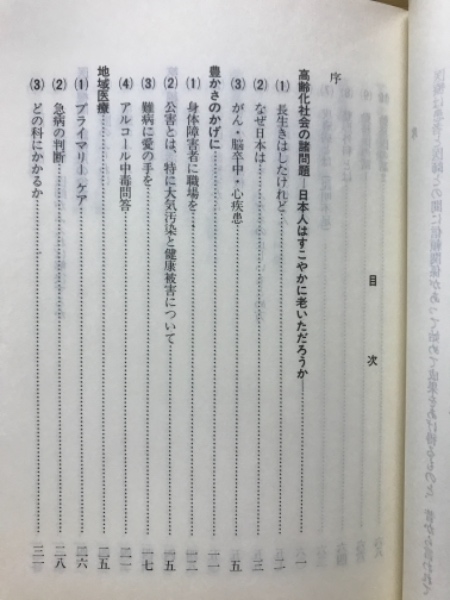 目次
序
高齢化社会の諸問題―日本人はすこやかに老いただろうか……一
(1) 長生きはしたけれど……二
(2) なぜ日本は……三
(3) がん・脳卒中・心疾患……五
豊かさのかげに……一一
(1) 身体障害者に職場を……一二
(2) 公害とは、特に大気汚染と健康被害について……一五
(3) 難病に愛の手を……一七
(4) アルコール中毒問答……二一
地域医療……二五
(1) プライマリー ケア……二六
(2) 急病の判断……二八
(3) どの科にかかるか……三一